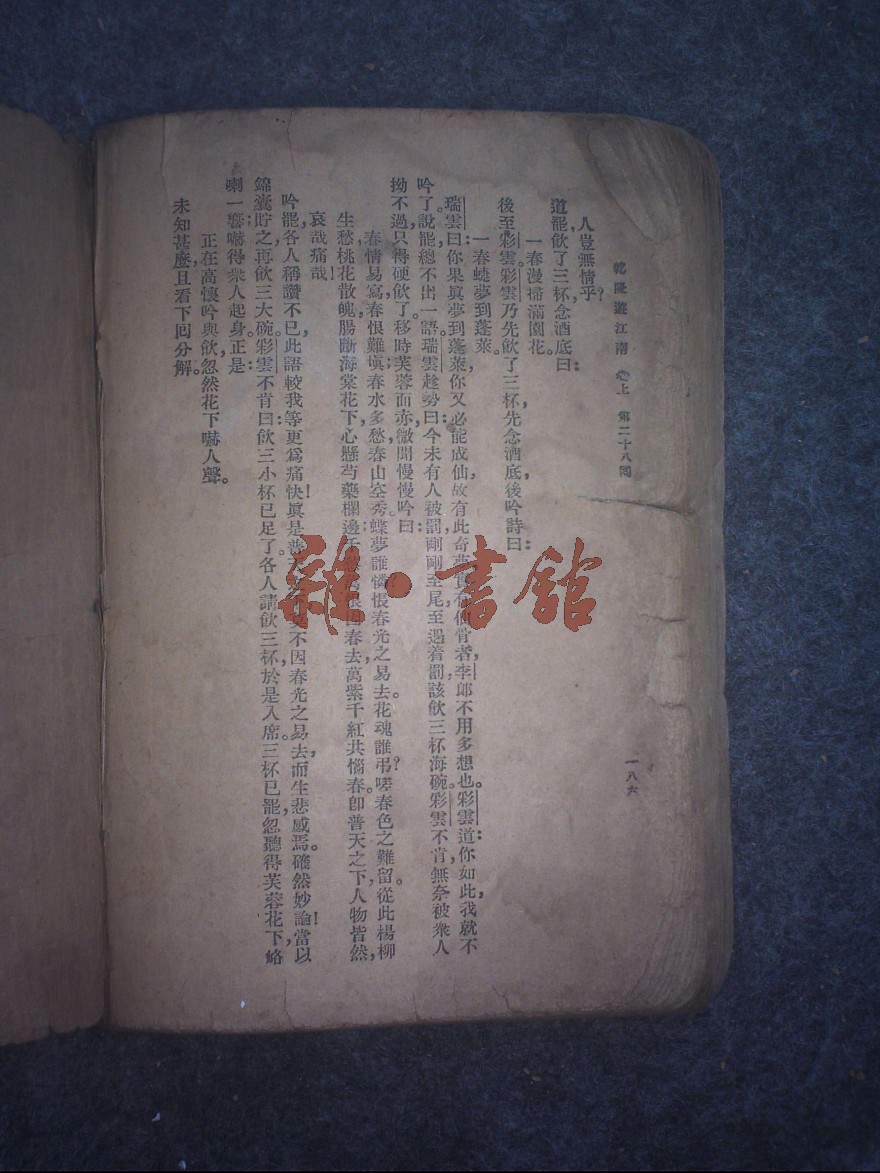 乾隆遊江南 卷上 第二十八囘 一八六
人豈無情乎？
道罷，飲了三杯，念酒底曰：
一春漫掃滿園花。
後至彩雲。彩雲乃先飲了三杯，先念酒底，後吟詩曰：
一春蜨夢到蓬萊。
瑞雲曰：你果眞夢到蓬萊，你又必能成仙，故有此奇夢，仙骨者，李郎不用多想也。彩雲道：你如此，我就不
吟了。說罷，總不出一語。瑞雲趁勢曰：今未有人被罰，剛剛至尾，至遇着罰，該飲三杯海碗。彩雲不肯，無奈被衆人
拗不過，只得硬飲了。移時芙蓉面赤，微開慢慢吟曰：
春情易寫，春恨難塡。春水多愁，春山空秀。蝶夢誰憐？悵春光之易去。花魂誰弔？嗟春色之難留。從此楊柳
生愁，桃花散魄，腸斷海棠花下，心懸芍藥欄邊。千恨因春去，萬紫千紅共惱春。卽普天之下，人物皆然，
哀哉痛哉！
吟罷，各人稱讚不已，此語較我等更爲痛快！眞是善不因春光之易去，而生悲感焉。確然妙論！當以
錦囊貯之，再飲三大碗。彩雲不肯曰：飲三小杯已足了。各人請飲三杯，於是入席。三杯已罷，忽聽得芙蓉花下，咯
喇一響，嚇得衆人起身。正是：
正在高懷吟與飲，忽然花下嚇人聲。
未知甚麽，且看下囘分解。
雜·書舘